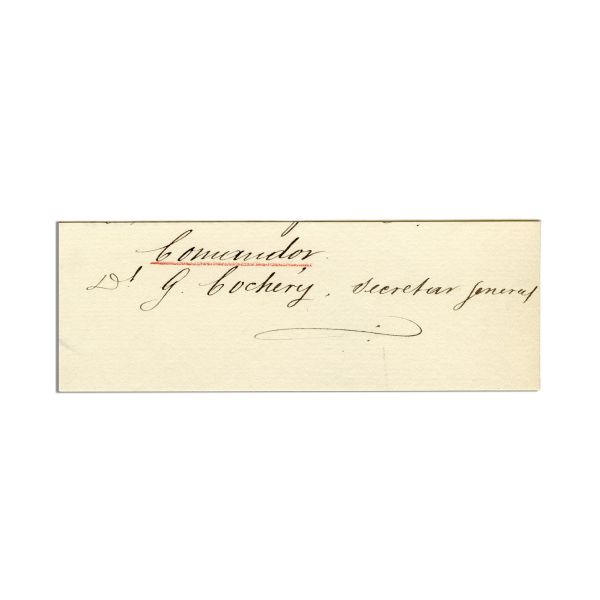 Comandor.
Dl G. Cochery, secretar general